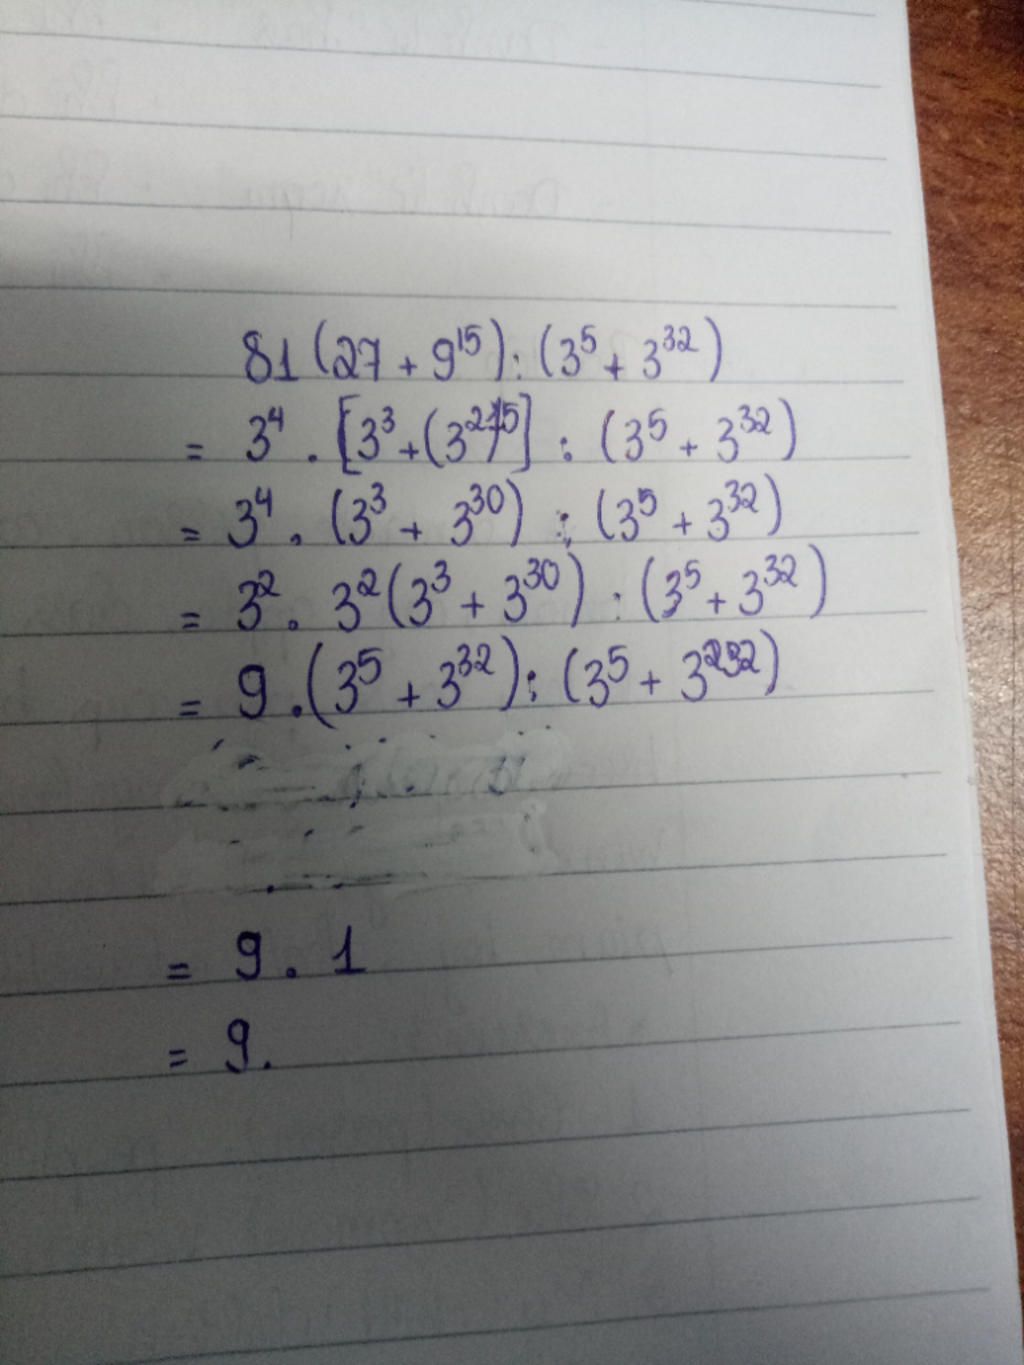 81(27 + 9¹⁵) : (3⁵ + 3³²)
= 3⁴ . [3³ + (3²)¹⁵] : (3⁵ + 3³²)
= 3⁴ . (3³ + 3³⁰) : (3⁵ + 3³²)
= 3² . 3²(3³ + 3³⁰) : (3⁵ + 3³²)
= 9 . (3⁵ + 3³²) : (3⁵ + 3³²)
= 9 . 1
= 9.